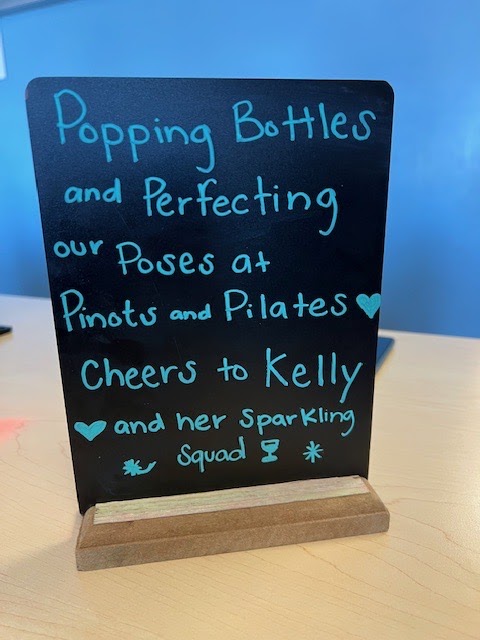 Popping Bottles
and Perfecting
our Poses at
Pinots and Pilates
Cheers to Kelly
and her Sparkling
Squad